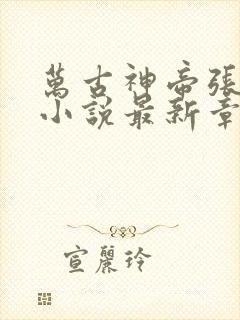 萬古神帝張
小說最新章
宣麗玲